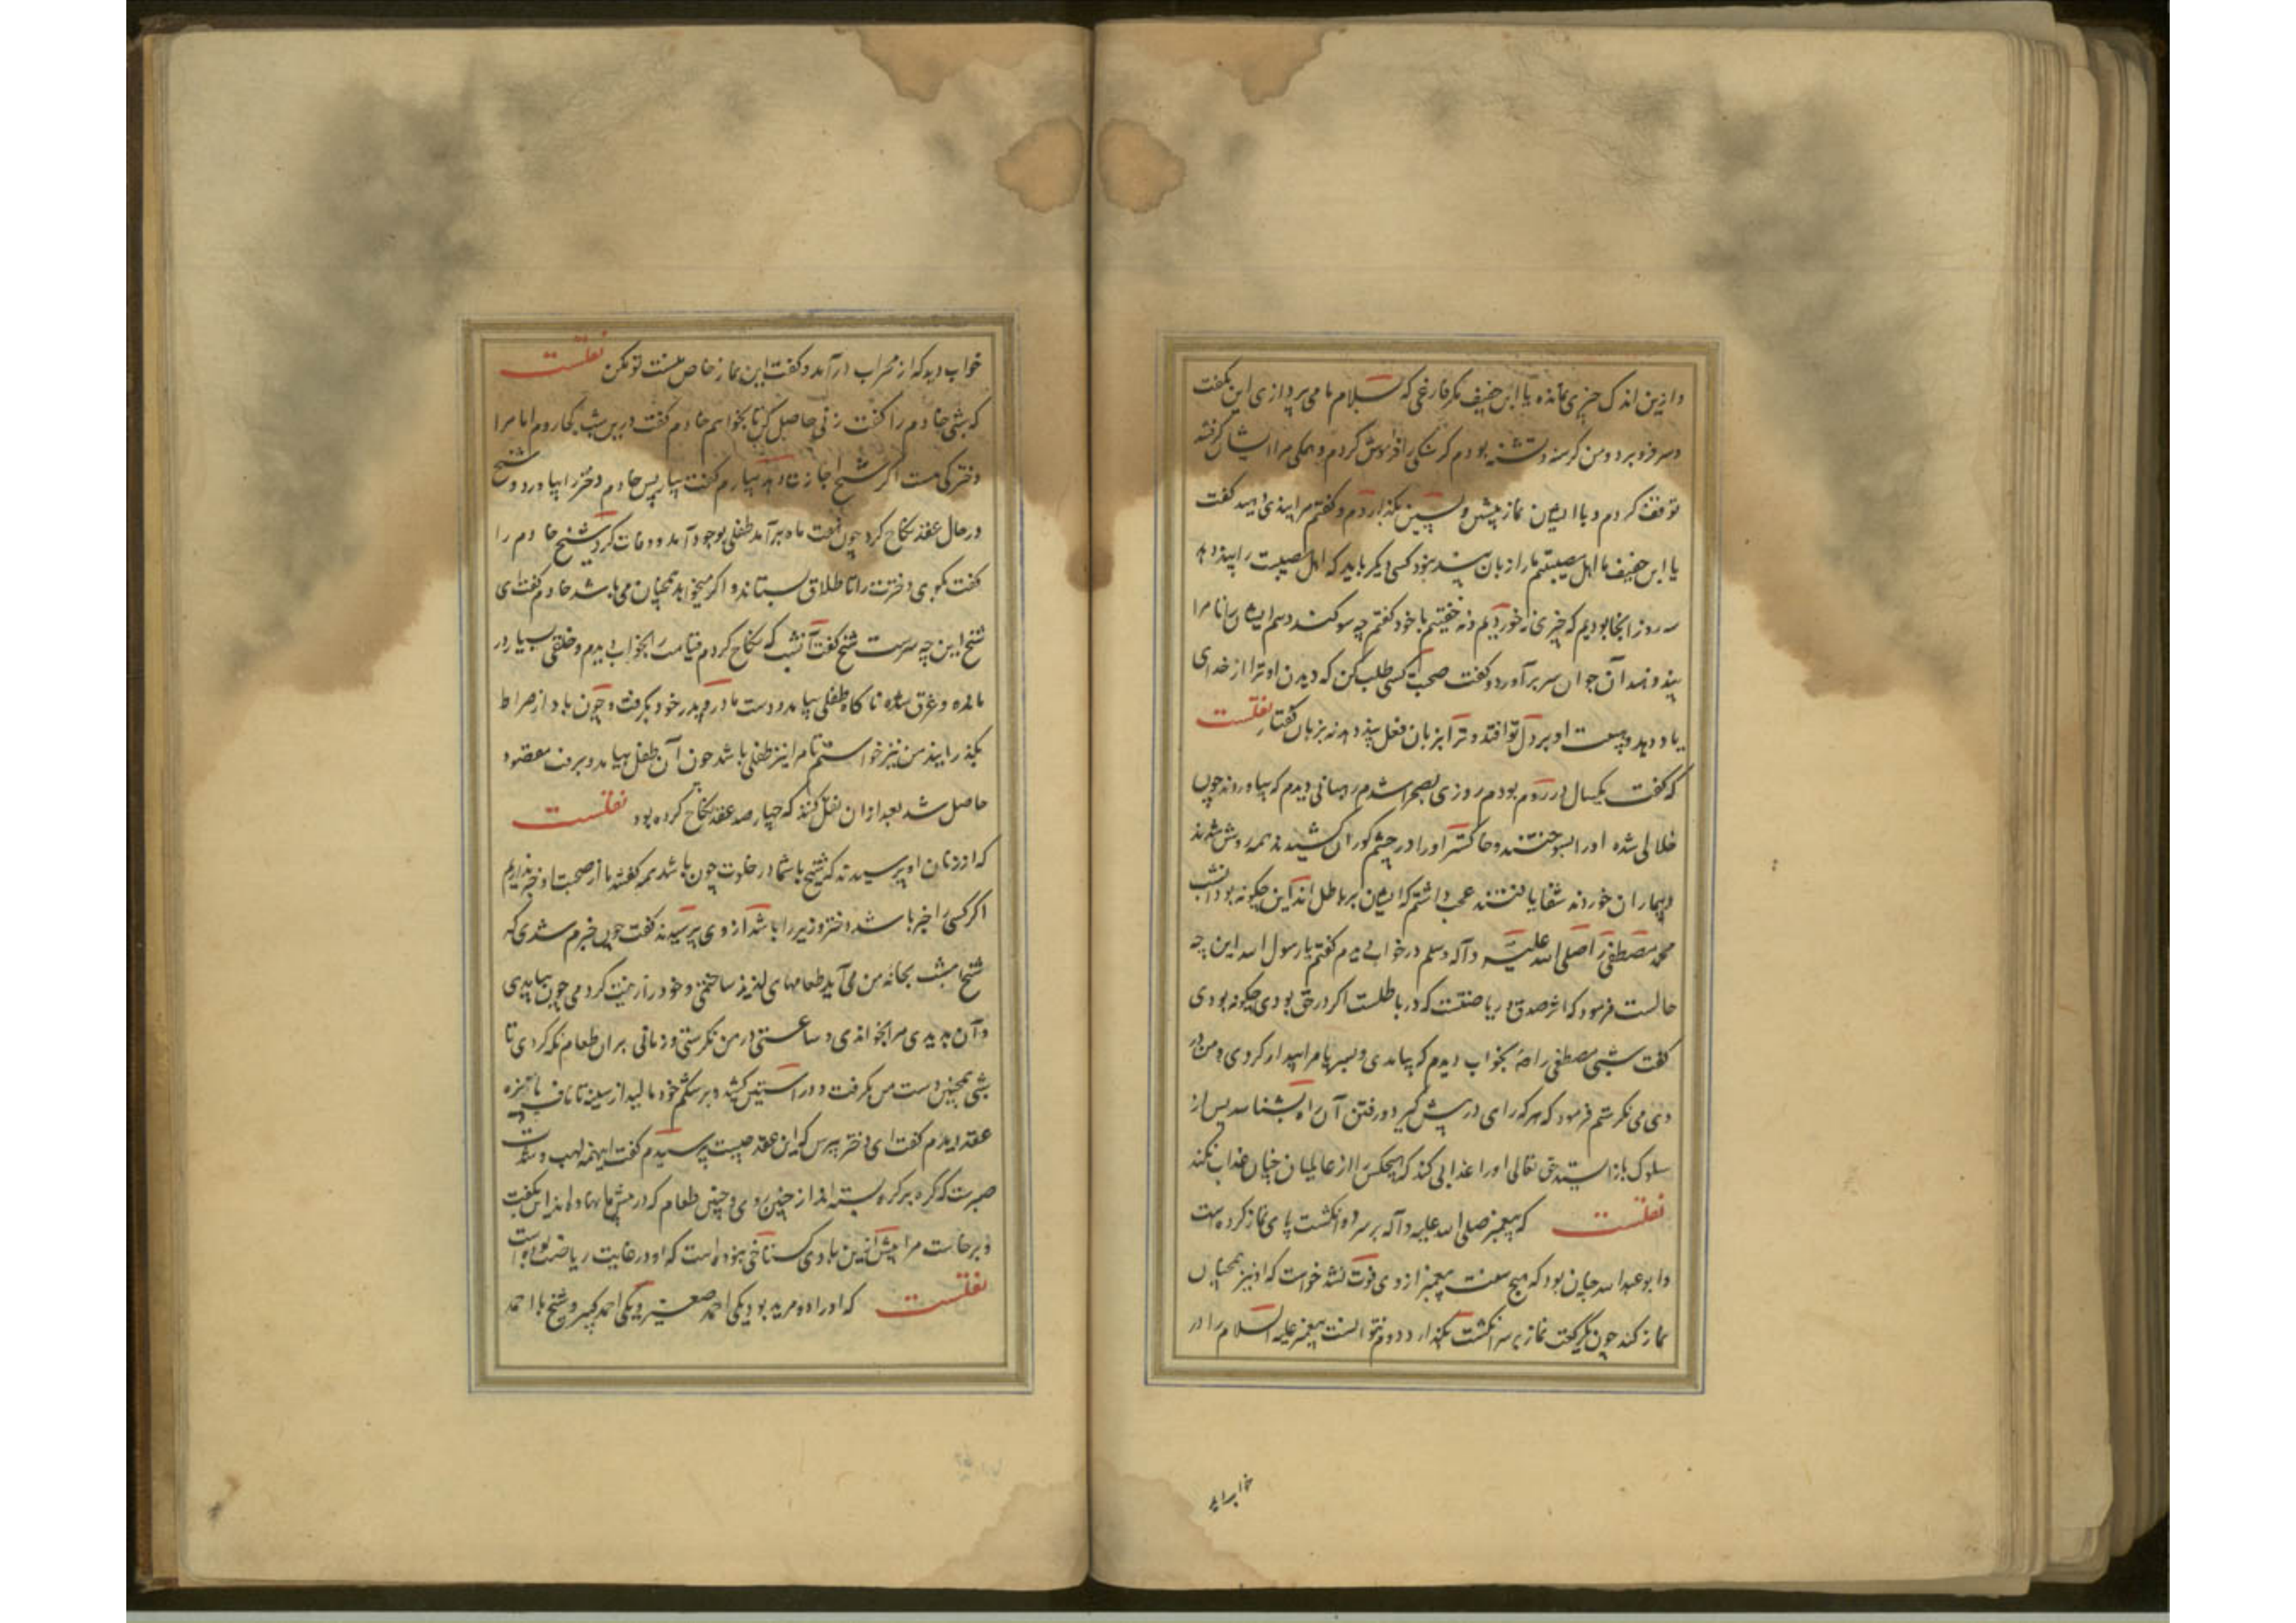 وازین اندک چیزی نمانده یا ابن خفیف مگر فارغی که بسلام ما می پردازی این بگفت
وسر فرو برد ومن کرسنه وتشنه بودم کرسنکی را فراموش کردم و همکی مرا ایشان کرفتند
توقف کردم و با ایشان نماز پیشین و پسین بگذاردم و کفتم مرا پندی دهید کفت
یا ابن خفیف ما اهل مصیبتیم ما را زبان پند نبود کسی دیکر باید که اهل مصیبت را پند دهد
سه روز آنجا بودیم که چیزی نه خوردیم ونه خفتیم با خود کفتم چه سوکند دهم ایشان را تا مرا
پند دهند آن جوان سر برآورد و کفت صحبت کسی طلب کن که دیدن او ترا از خدای
یاد دهد و هیبت او بر دل تو افتد و ترا بزبان فعل پند دهد نه بزبان کفتار نقلست
که کفت یکسال در روم بودم روزی بصحرا شدم رهبانی دیدم که بیاوردند چون
خلالی شده اورا بسوختند و خاکستر اورا در چشم کوران کشیدند همه روشن شدند
و بیماران خوردند شفا یافتند عجب داشتم که ایشان بر باطل اند این چکونه بود آن شب
محمد مصطفی را صلی الله علیه وآله وسلم در خواب دیدم کفتم یا رسول الله این چه
حالست فرمود که اثر صدق و ریاضتست که در باطلست اکر در حق بودی چکونه بودی
کفت شبی مصطفی را بخواب دیدم که بیامدی و بسر پا مرا بیدار کردی و من در
وی می نکرستم فرمود که هر که راهی در پیش گیرد و رفتن آن راه بشناسد پس از
سلوک باز ایستد حق تعالی اورا عذابی کند که هیچکس را از عالمیان چنان عذاب نکند
نقلست که پیغمبر صلی الله علیه وآله بر سر دو انکشت پای نماز کرده است
و ابو عبد الله چنان بود که هیچ سنت پیغمبر از وی فوت نشد خواست که او نیز همچنان
نماز کند چون یک رکعت نماز بر سر انکشت بگذارد دوم نتوانست پیغمبر علیه السلام را در
خواب دید
خواب دید که از محراب درآمد و کفت این نماز خاص منست تو مکن نقلست
که شبی خادم را کفت زنی حاصل کن تا بخواهم خادم کفت درین شب کجا روم اما مرا
دخترکی هست اکر شیخ اجازت دهد بیارم کفت بیار پس خادم دختر را بیاورد و شیخ
در حال عقد نکاح کرد چون هفت ماه برآمد طفلی بوجود آمد و وفات کرد شیخ خادم را
کفت بکوی دخترت را تا طلاق بستاند و اکر میخواهد همچنان می باشد خادم کفت ای
شیخ این چه سرست شیخ کفت آن شب که نکاح کردم قیامت بخواب دیدم و خلقی بسیار در
مانده و غرق شده ناکاه طفلی بیامد و دست مادر و پدر خود بکرفت و چون باد از صراط
بگذرانید من نیز خواستم تا مرا نیز طفلی باشد چون آن طفل بیامد و برفت مقصود
حاصل شد بعد از آن نقل کنند که چهار صد عقد نکاح کرده بود نقلست
که از زنان او پرسیدند که شیخ با شما در خلوت چون باشد همه کفتند ما از صحبت او خبر نداریم
اکر کسی را خبر باشد دختر وزیر را باشد از وی پرسیدند کفت چون خبرم شدی که
شیخ امشب بخانه من می آید طعامهای لذیذ ساختمی و خود را زینت کردمی چون بیامدی
و آن بدیدی مرا بخواندی و ساعتی در من نکرستی و زمانی بر آن طعام نکه کردی تا
شبی همچنین دست من بکرفت و در آستین کشید و بر شکم خود مالید از سینه تا ناف پانزده
عقد دیدم کفت ای دختر بپرس که این عقد چیست پرسیدم کفت اینهمه لهب و شدت
صبرست که کره بر کره بسته اند از چنین روی و چنین طعام که در پیش ما نهاده اند این بکفت
و برخاست مرا بیش ازین با وی کستاخی نبوده است که او در غایت ریاضت بوده است
نقلست که اورا دو مرید بود یکی احمد صغیر و یکی احمد کبیر و شیخ با احمد